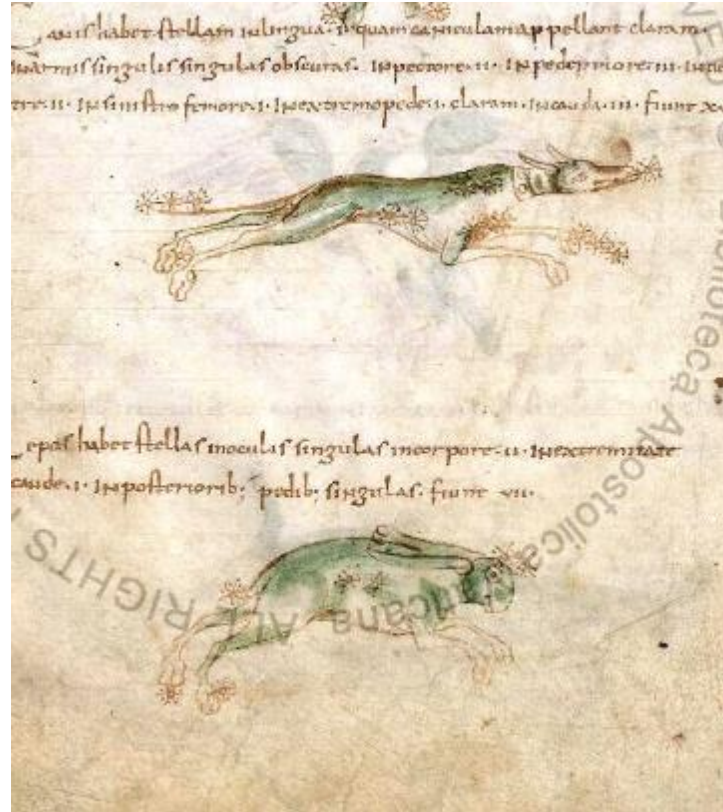 anis habet stellam in lingua .i. quam caniculam appellant claram.
in armis singulis singulas obscuras. in pectore .ii. in pede priore .iii.
.ii. in sinistro femore .i. in extremo pede .i. claram. in cauda .iii. fiunt x
epos habet stellas in oculis singulas in corpore .ii. in extremitate
caude .i. in posteriorib; pedib; singulas. fiunt vii.
blioteca Apostolica Vaticana ALL RIGHTS